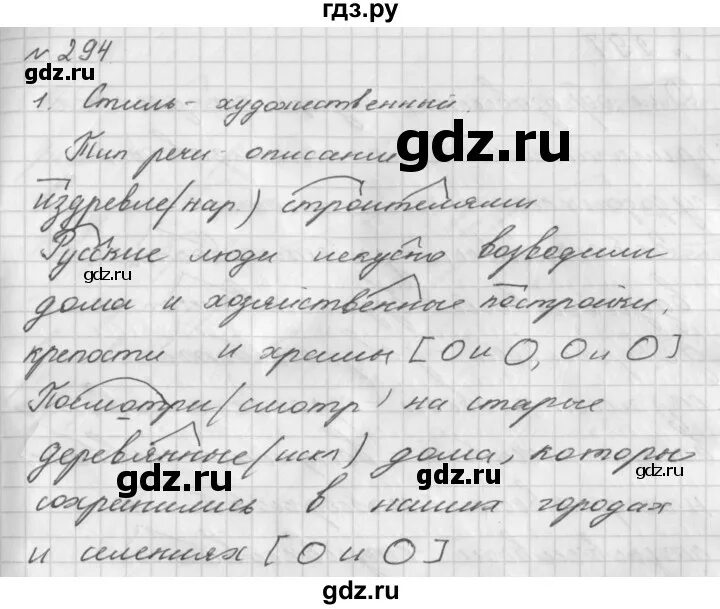 гдз.ру
№ 294
gdz.ru
1. Стиль - художественный.
gdz.ru
Тип речи - описание
издревле (нар.) строителями
Русские люди искусно возводили
gdz.ru
gdz.ru
дома и хозяйственные постройки,
крепости и храмы [О и О, О и О]
Посмотри (смотр) на старые
деревянные (искл) дома, которы
gdz.ru
gdz.ru
сохранились в наших городах
и селениях [О и О]
gdz.ru